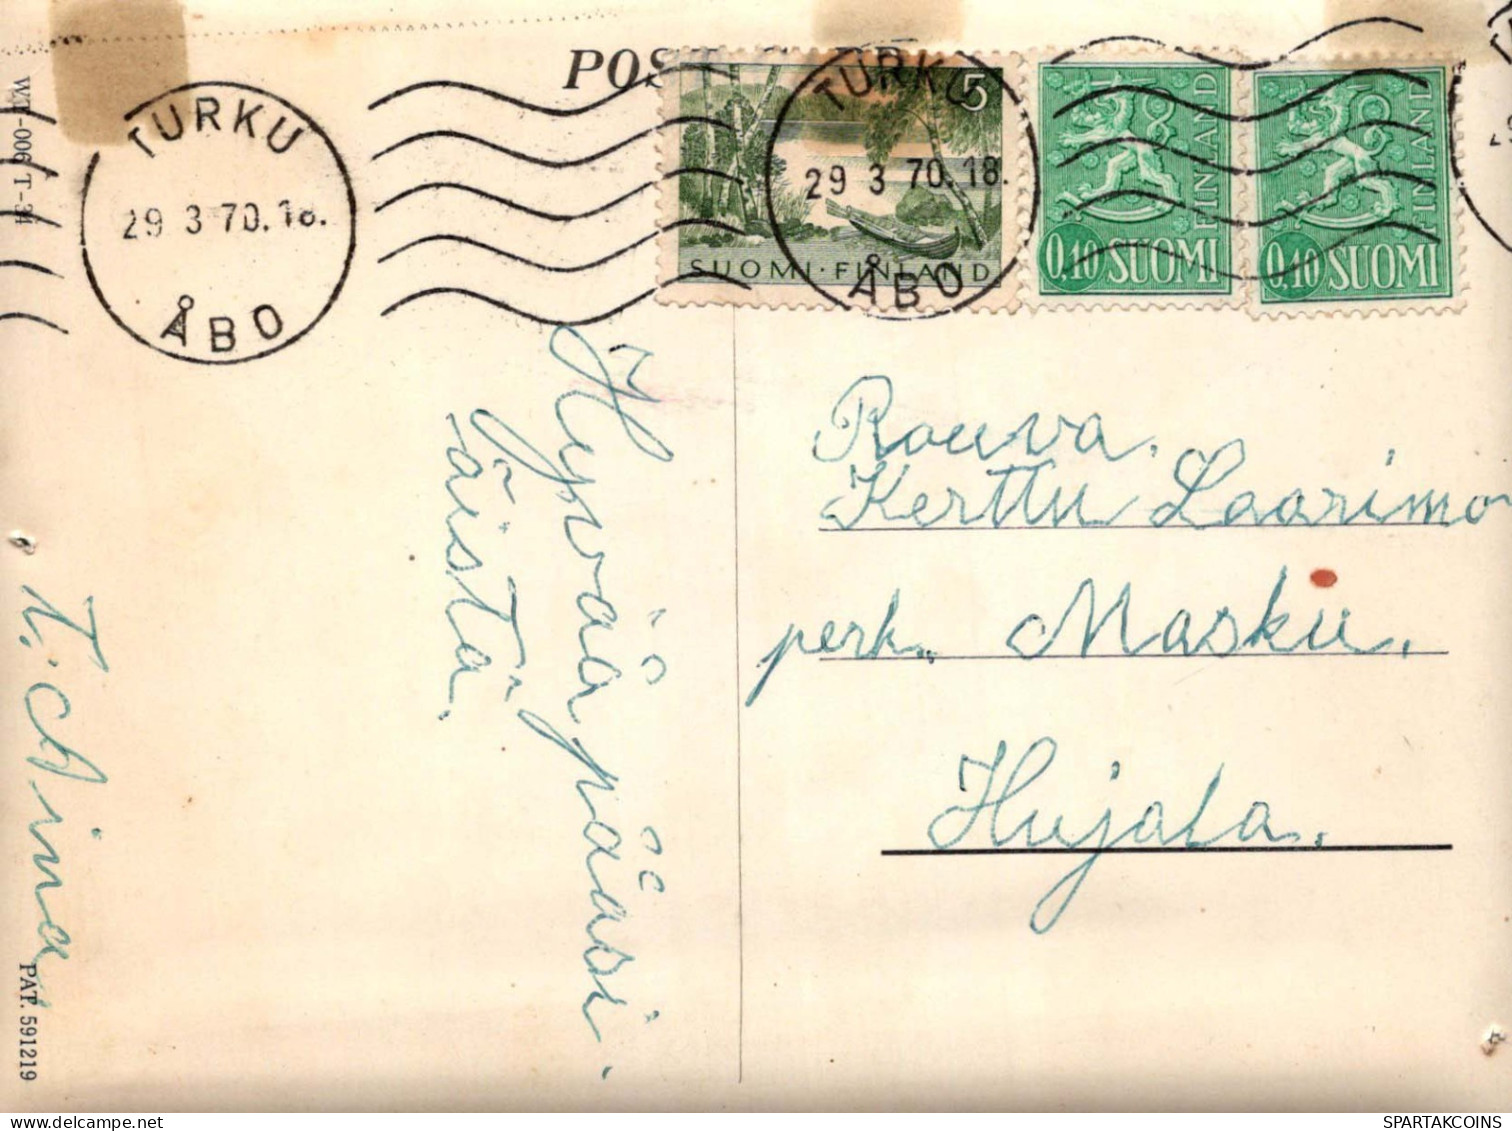 POST
TURKU
29 3 70.18.
ÅBO
5
SUOMI·FINLAND
TURKU
29 3 70.18.
ÅBO
0,10 SUOMI
FINLAND
0,10 SUOMI
FINLAND
Hyvää pääsi
äistä.
T: Aina
Rouva.
Kerttu Laarimo
perk. Masku.
Hujala.
006 T-34
PAT. 591219
SPARTAKCOINS